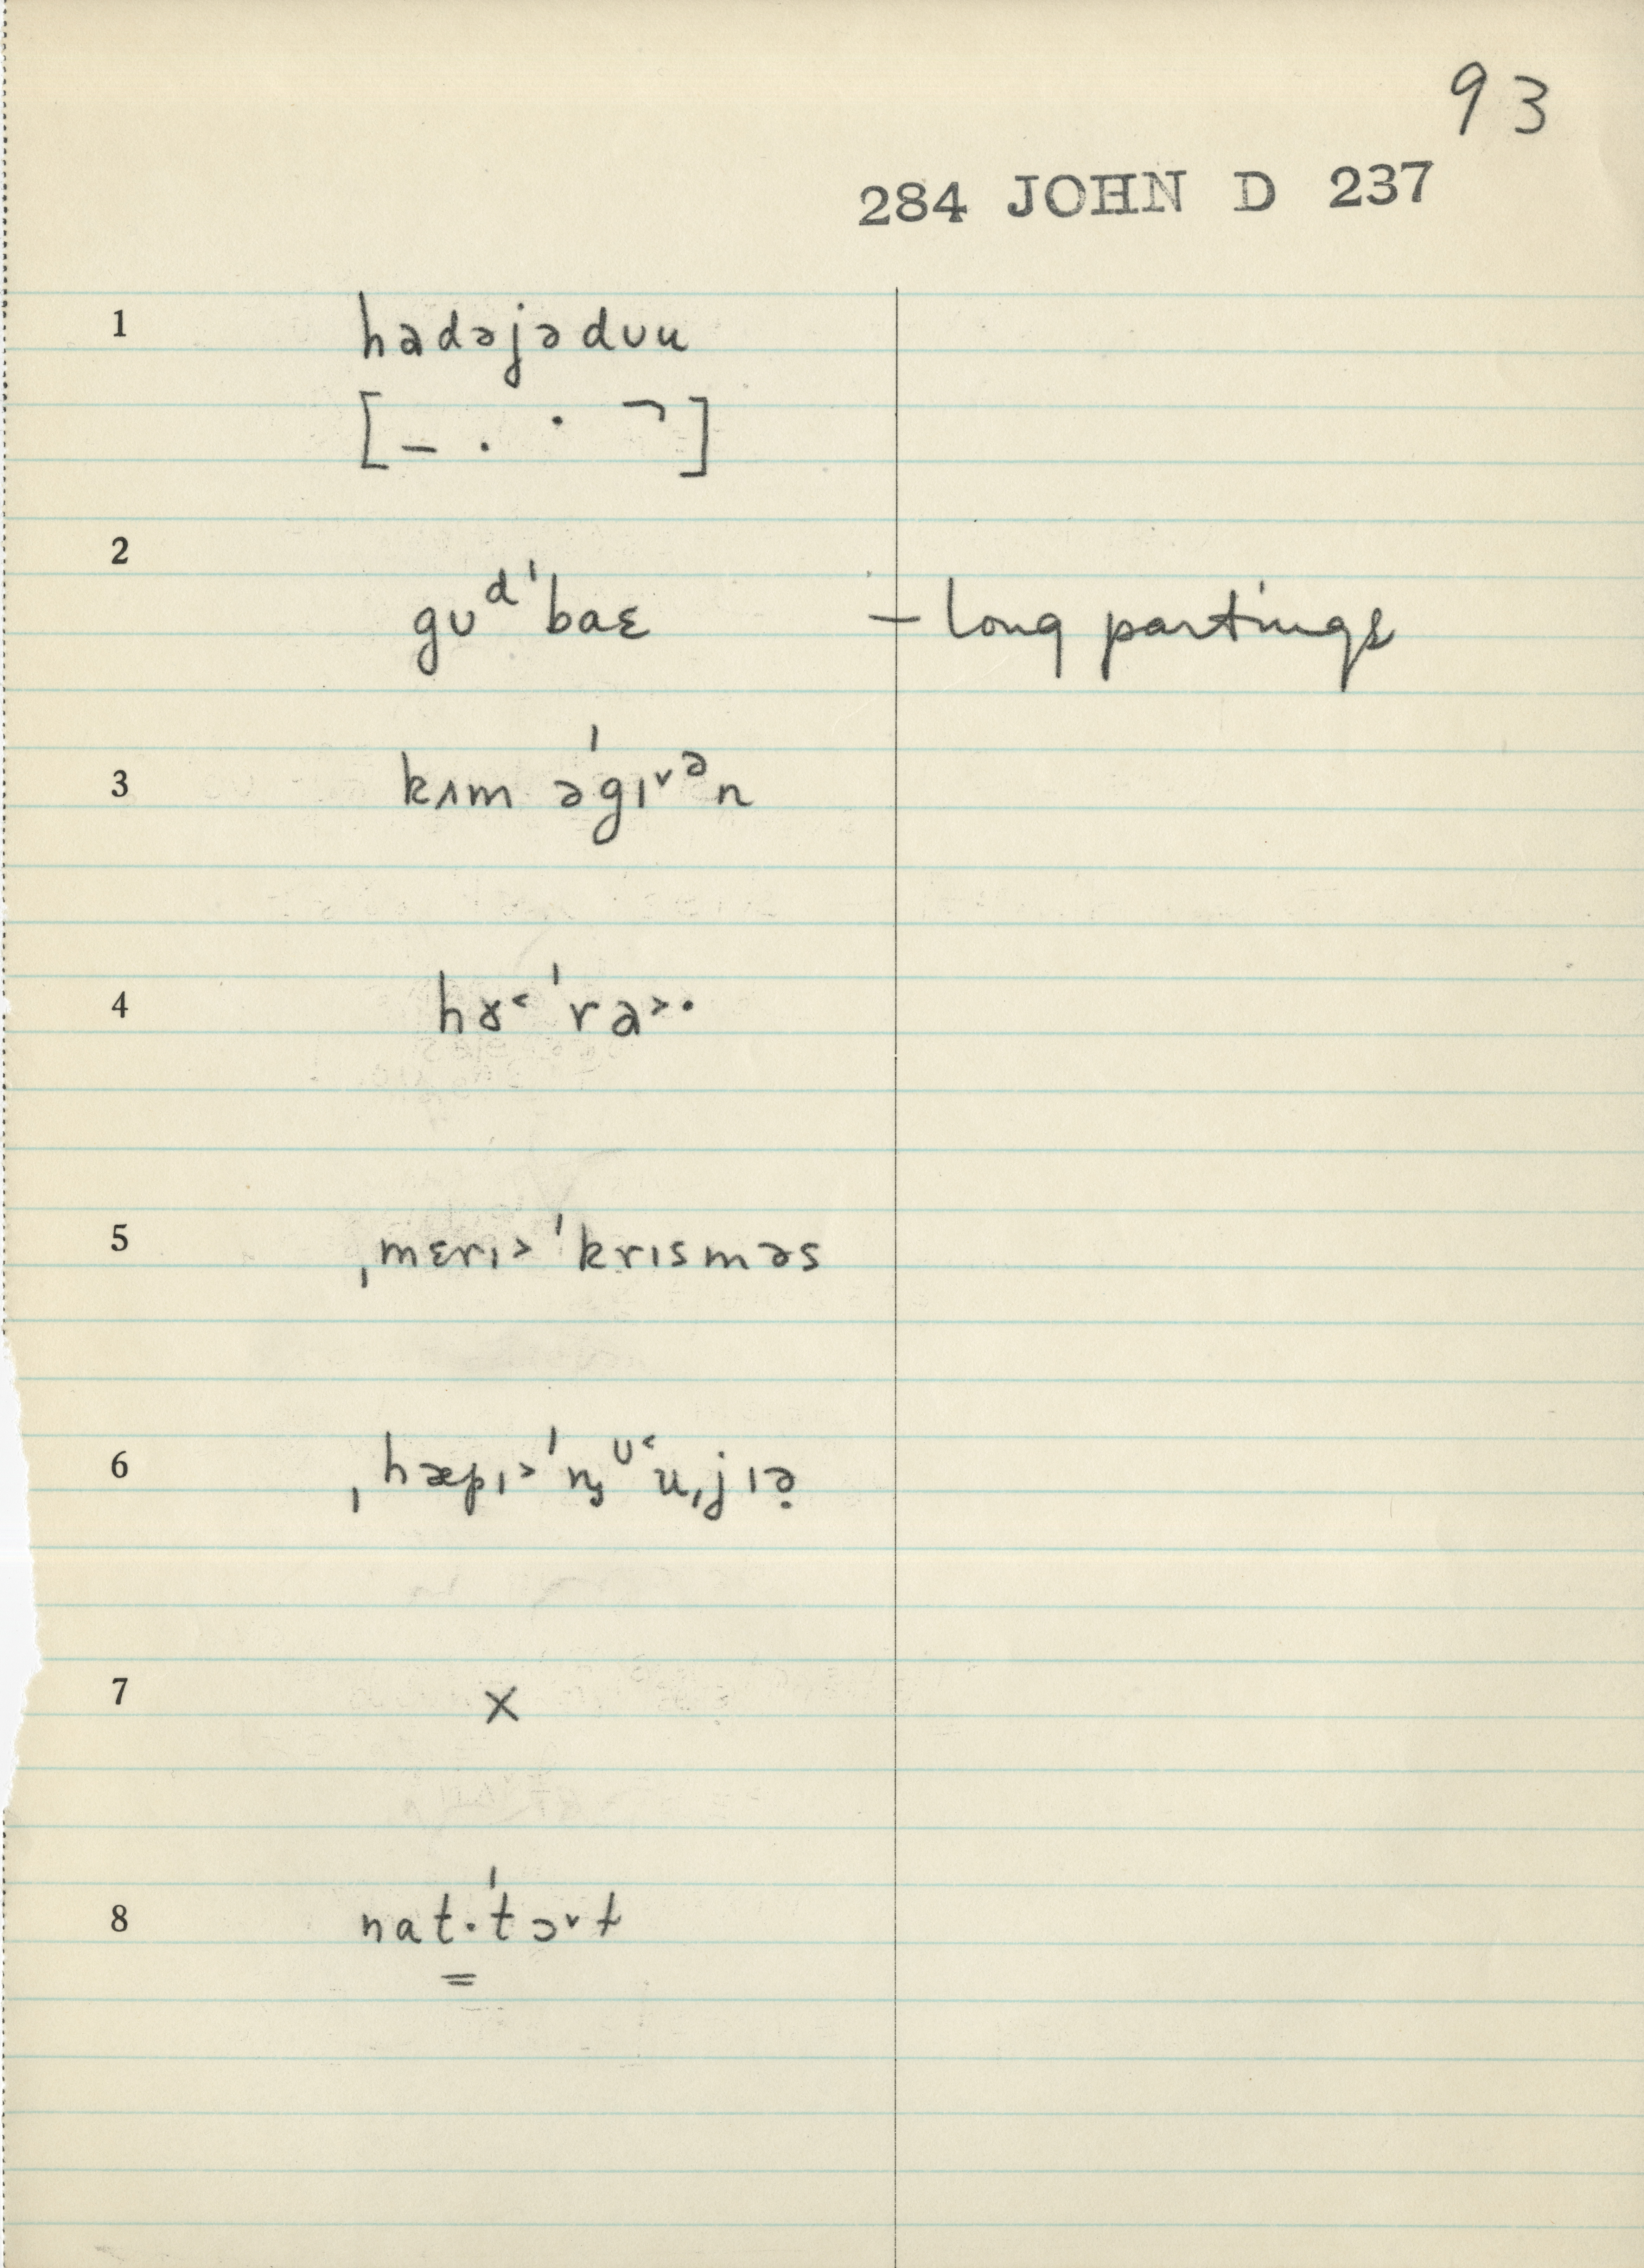 93
284 JOHN D 237
1 hadəjədʊu
[– . · ¬]
2 gʊᵈˈbaɛ – long partings
3 kʌm əˈgɪ˅ᵊn
4 hɤ˂ˈra˃·
5 ˌmɛrɪ˃ˈkrɪsməs
6 ˌhæpɪ˃ˈn̡ᶷ˂uˌjɪə̣
7 x
8 nat·ˈtɔ˅ɫ
=